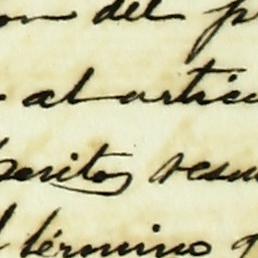 on del p
al articu
peritos resu
l término q